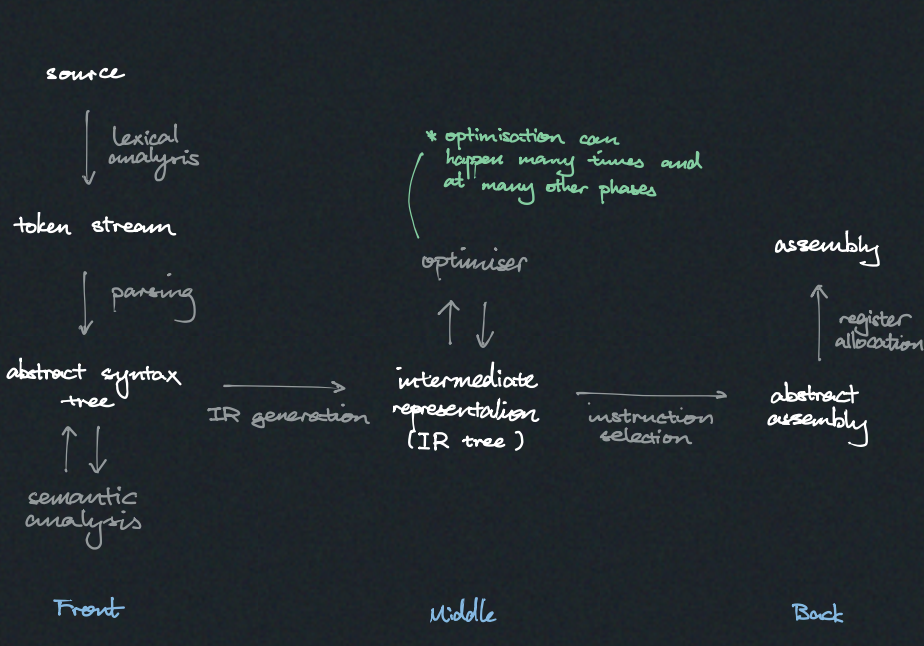 source
lexical
analysis
token stream
parsing
abstract syntax
tree
semantic
analysis
Front
IR generation
* optimisation can
happen many times and
at many other phases
optimiser
intermediate
representation
(IR tree)
Middle
instruction
selection
assembly
register
allocation
abstract
assembly
Back